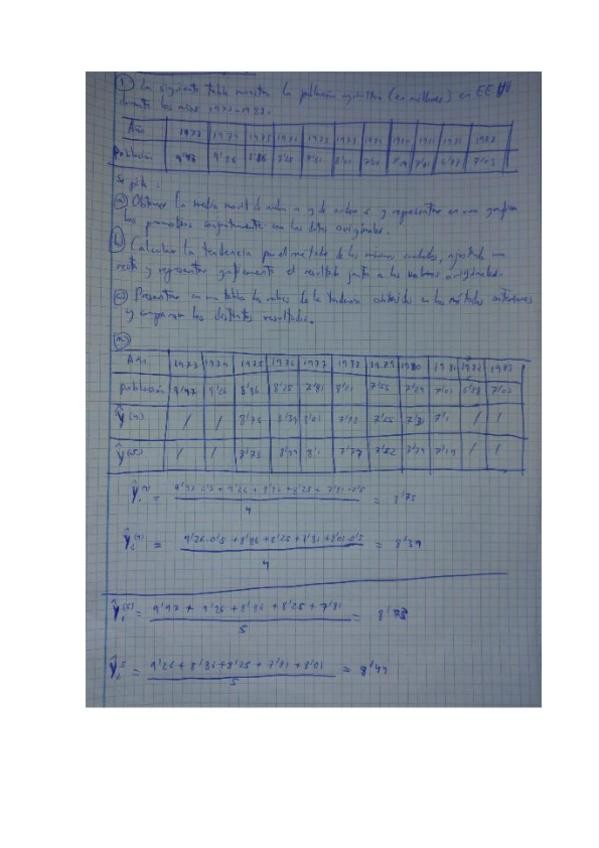 ① La siguiente tabla muestra la población agrícola (en millones) en EE UU
durante los años 1973-1983.
Año 1973 1974 1975 1976 1977 1978 1979 1980 1981 1982 1983
Población 9'47 9'26 8'86 8'25 7'81 8'01 7'55 7'24 7'01 6'88 7'03
Se pide:
ⓐ Obtener la media movil de orden 4 y de orden 5 y representar en una gráfica
los promedios conjuntamente con los datos originales.
ⓑ Calcular la tendencia por el metodo de los minimos cuadrados, ajustando una
recta y representar graficamente el resultado junto a los valores originales.
ⓒ Presentar en una tabla los valores de la tendencia obtenidos en los métodos anteriores
y comparar los distintos resultados.
ⓐ
Año 1973 1974 1975 1976 1977 1978 1979 1980 1981 1982 1983
población 9'47 9'26 8'86 8'25 7'81 8'01 7'55 7'24 7'01 6'88 7'03
Ŷ(4) / / 8'75 8'39 8'01 7'55 7'1 / /
Ŷ(5) / / 8'73 8'44 8'1 7'77 7'52 7'14 / /
Ŷ₁(4) = 9'47·0'5 + 9'26 + 8'86 + 8'25 + 7'81·0'5 / 4 = 8'75
Ŷ₂(4) = 9'26·0'5 + 8'86 + 8'25 + 7'81 + 8'01·0'5 / 4 = 8'39
Ŷ₁(5) = 9'47 + 9'26 + 8'86 + 8'25 + 7'81 / 5 = 8'73
Ŷ₂5 = 9'26 + 8'86 + 8'25 + 7'81 + 8'01 / 5 = 8'44